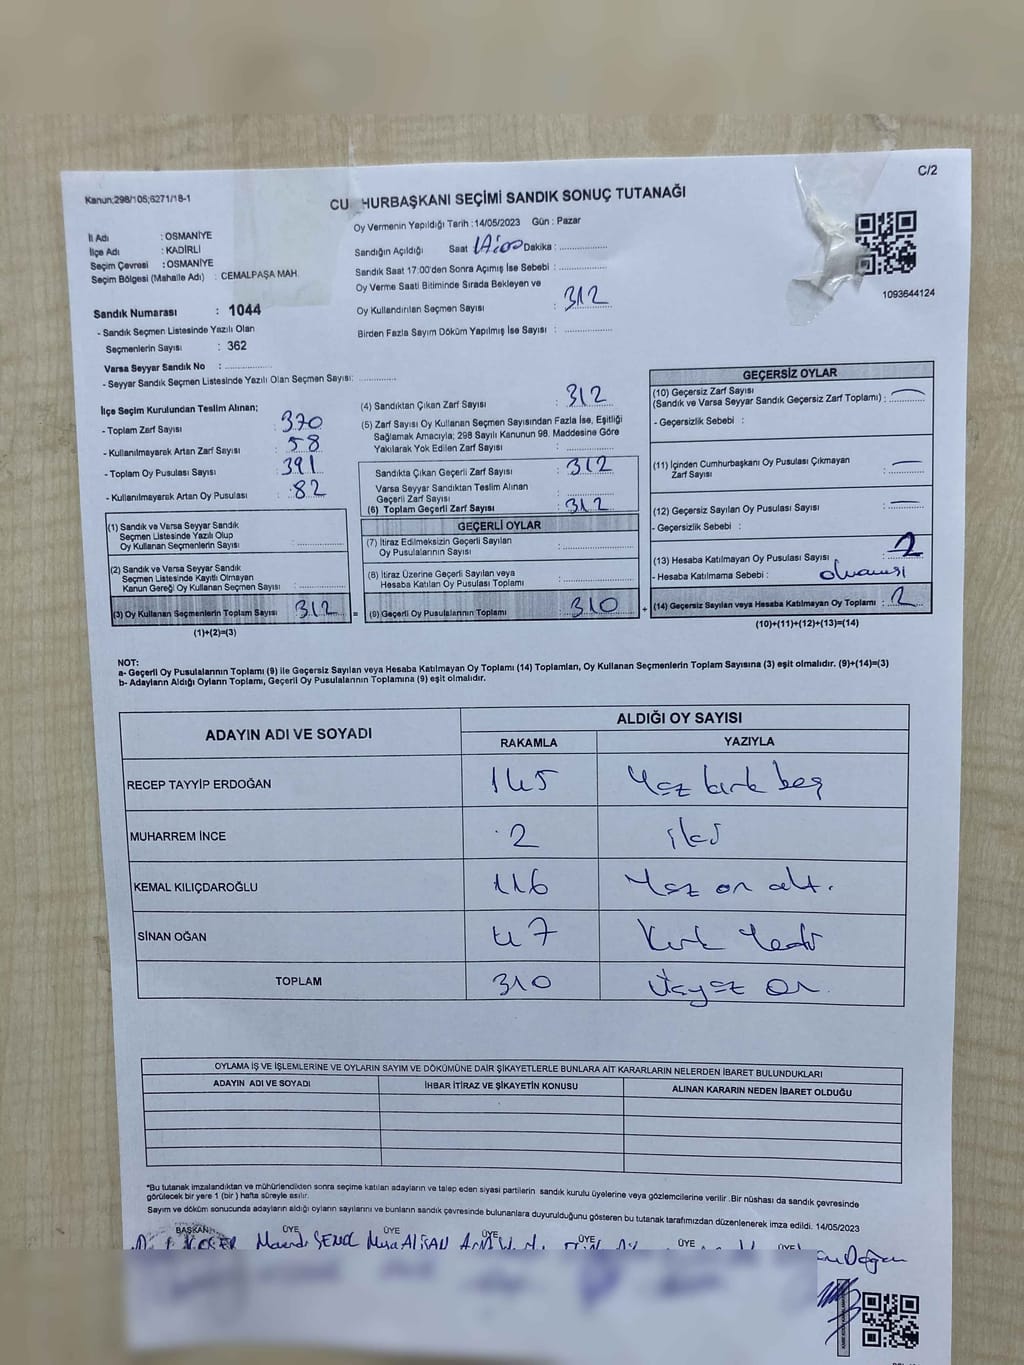 C/2
Kanun;298/105;6271/18-1
CU HURBAŞKANI SEÇİMİ SANDIK SONUÇ TUTANAĞI
Oy Vermenin Yapıldığı Tarih :14/05/2023 Gün : Pazar
İl Adı : OSMANİYE
İlçe Adı : KADİRLİ
Seçim Çevresi : OSMANİYE
Seçim Bölgesi (Mahalle Adı) : CEMALPAŞA MAH.
Sandığın Açıldığı Saat 17:00 Dakika : ..............
Sandık Saat 17:00'den Sonra Açımış İse Sebebi : ..............
Oy Verme Saati Bitiminde Sırada Bekleyen ve
Oy Kullandırılan Seçmen Sayısı : 312
Birden Fazla Sayım Döküm Yapılmış İse Sayısı : ..............
1093644124
Sandık Numarası : 1044
- Sandık Seçmen Listesinde Yazılı Olan
Seçmenlerin Sayısı : 362
Varsa Seyyar Sandık No : ..............
- Seyyar Sandık Seçmen Listesinde Yazılı Olan Seçmen Sayısı: ..............
İlçe Seçim Kurulundan Teslim Alınan;
- Toplam Zarf Sayısı : 370
- Kullanılmayarak Artan Zarf Sayısı : 58
- Toplam Oy Pusulası Sayısı : 391
- Kullanılmayarak Artan Oy Pusulası : 82
(1) Sandık ve Varsa Seyyar Sandık
Seçmen Listesinde Yazılı Olup
Oy Kullanan Seçmenlerin Sayısı : ..............
(2) Sandık ve Varsa Seyyar Sandık
Seçmen Listesinde Kayıtlı Olmayan
Kanun Gereği Oy Kullanan Seçmen Sayısı : ..............
(3) Oy Kullanan Seçmenlerin Toplam Sayısı : 312
(1)+(2)=(3)
(4) Sandıktan Çıkan Zarf Sayısı : 312
(5) Zarf Sayısı Oy Kullanan Seçmen Sayısından Fazla İse, Eşitliği
Sağlamak Amacıyla; 298 Sayılı Kanunun 98. Maddesine Göre
Yakılarak Yok Edilen Zarf Sayısı : ..............
Sandıkta Çıkan Geçerli Zarf Sayısı : 312
Varsa Seyyar Sandıktan Teslim Alınan
Geçerli Zarf Sayısı : ..............
(6) Toplam Geçerli Zarf Sayısı : 312
GEÇERLİ OYLAR
(7) İtiraz Edilmeksizin Geçerli Sayılan
Oy Pusulalarının Sayısı : ..............
(8) İtiraz Üzerine Geçerli Sayılan veya
Hesaba Katılan Oy Pusulası Toplamı : ..............
=
(9) Geçerli Oy Pusulalarının Toplamı : 310
+
GEÇERSİZ OYLAR
(10) Geçersiz Zarf Sayısı
(Sandık ve Varsa Seyyar Sandık Geçersiz Zarf Toplamı) : —
- Geçersizlik Sebebi :
(11) İçinden Cumhurbaşkanı Oy Pusulası Çıkmayan
Zarf Sayısı : —
(12) Geçersiz Sayılan Oy Pusulası Sayısı : —
- Geçersizlik Sebebi :
(13) Hesaba Katılmayan Oy Pusulası Sayısı : 2
- Hesaba Katılmama Sebebi : olmaması
(14) Geçersiz Sayılan veya Hesaba Katılmayan Oy Toplamı : 2
(10)+(11)+(12)+(13)=(14)
NOT:
a- Geçerli Oy Pusulalarının Toplamı (9) ile Geçersiz Sayılan veya Hesaba Katılmayan Oy Toplamı (14) Toplamları, Oy Kullanan Seçmenlerin Toplam Sayısına (3) eşit olmalıdır. (9)+(14)=(3)
b- Adayların Aldığı Oyların Toplamı, Geçerli Oy Pusulalarının Toplamına (9) eşit olmalıdır.
ADAYIN ADI VE SOYADI
ALDIĞI OY SAYISI
RAKAMLA YAZIYLA
RECEP TAYYİP ERDOĞAN 145 Yüz kırk beş
MUHARREM İNCE 2 iki
KEMAL KILIÇDAROĞLU 116 Yüz on altı
SİNAN OĞAN 47 Kırk Yedi
TOPLAM 310 Üçyüz on
OYLAMA İŞ VE İŞLEMLERİNE VE OYLARIN SAYIM VE DÖKÜMÜNE DAİR ŞİKAYETLERLE BUNLARA AİT KARARLARIN NELERDEN İBARET BULUNDUKLARI
ADAYIN ADI VE SOYADI İHBAR İTİRAZ VE ŞİKAYETİN KONUSU ALINAN KARARIN NEDEN İBARET OLDUĞU
*Bu tutanak imzalandıktan ve mühürlendikten sonra seçime katılan adayların ve talep eden siyasi partilerin sandık kurulu üyelerine veya gözlemcilerine verilir .Bir nüshası da sandık çevresinde
görülecek bir yere 1 (bir ) hafta süreyle asılır.
Sayım ve döküm sonucunda adayların aldığı oyların sayılarını ve bunların sandık çevresinde bulunanlara duyurulduğunu gösteren bu tutanak tarafımızdan düzenlenerek imza edildi. 14/05/2023
BAŞKAN ÜYE ÜYE ÜYE ÜYE ÜYE ÜYE
ŞENOL Musa ALİŞAN Doğan